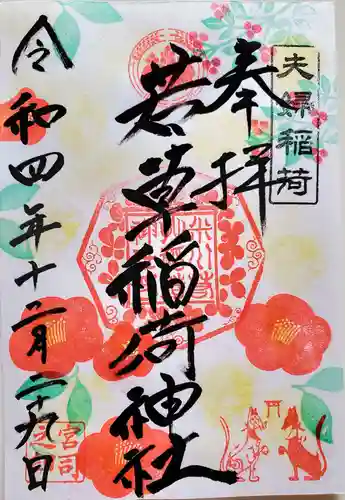 夫婦稲荷
奉拝
若草稲荷神社
令和四年十二月二十九日
宮司